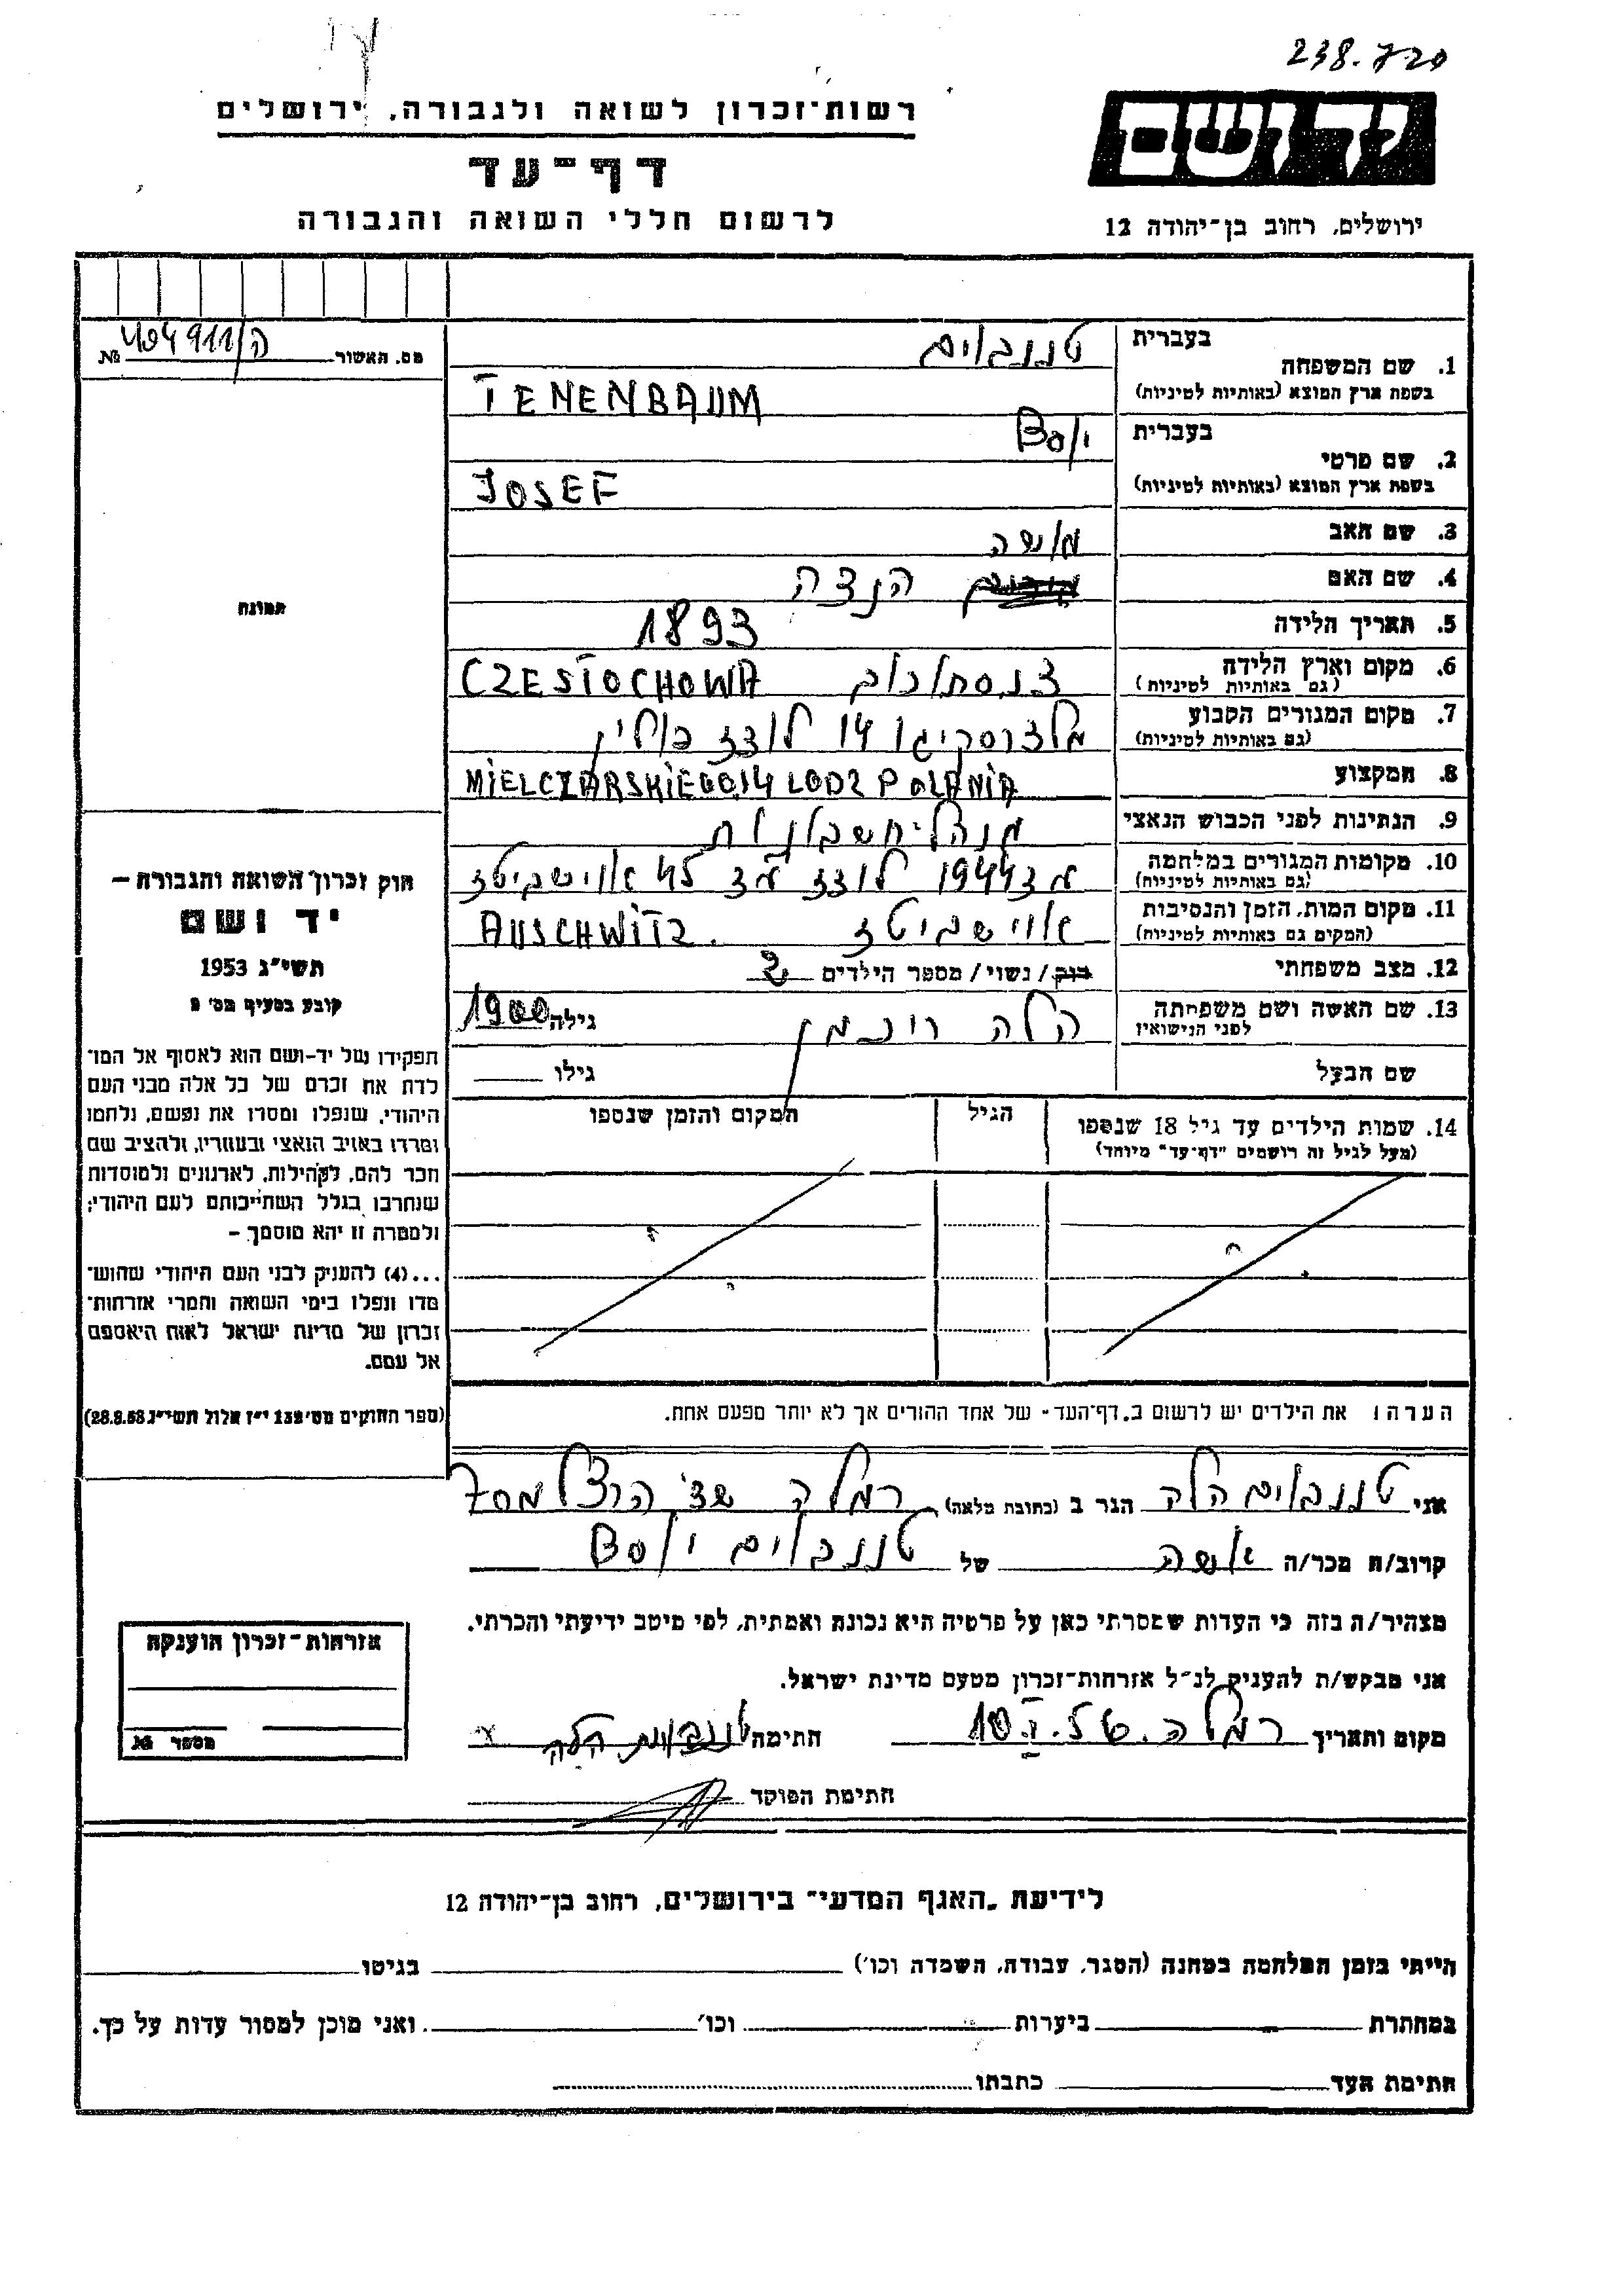 238.720
רשות־זכרון לשואה ולגבורה, ירושלים
יד ושם
דף־עד
לרשום חללי השואה והגבורה
ירושלים, רחוב בן־יהודה 12
מס. תאשור № 404911/ה
תמונה
1. שם המשפחה בעברית טננבוים
בשפת ארץ המוצא (באותיות לטיניות) TENENBAUM
2. שם פרטי בעברית יוסף
בשפת ארץ המוצא (באותיות לטיניות) JOSEF
3. שם האב משה
4. שם האם הנצה
5. תאריך הלידה 1893
6. מקום וארץ הלידה צ'נסטוכוב CZESTOCHOWA
(גם באותיות לטיניות)
7. מקום המגורים הקבוע 14 לודז פולין
(גם באותיות לטיניות)
8. המקצוע MIELCZARSKIEGO 14 LODZ POLANIA
9. הנתינות לפני הכבוש הנאצי מנהל חשבונות
10. מקומות המגורים במלחמה 1944 לודז
(גם באותיות לטיניות)
11. מקום המות, הזמן והנסיבות אוישביטז AUSCHWITZ.
(המקום גם באותיות לטיניות)
12. מצב משפחתי רוק / נשוי / מספר הילדים 2
13. שם האשה ושם משפחתה הלה גילה 1900
לפני הנישואין
שם הבעל גילו
14. שמות הילדים עד גיל 18 שנספו הגיל המקום והזמן שנספו
(מעל לגיל זה רושמים "דף־עד" מיוחד)
חוק זכרון השואה והגבורה –
יד ושם
תשי"ג 1953
קובע בסעיף מס' 2
תפקידו של יד-ושם הוא לאסוף אל המו־
לדת את זכרם של כל אלה מבני העם
היהודי, שנפלו ומסרו את נפשם, נלחמו
ומרדו באויב הנאצי ובעוזריו, ולהציב שם
וזכר להם, לקהילות, לארגונים ולמוסדות
שנחרבו בגלל השתייכותם לעם היהודי;
ולמטרה זו יהא מוסמך –
...(4) להעניק לבני העם היהודי שהוש־
מדו ונפלו בימי השואה והמרי אזרחות־
זכרון של מדינת ישראל לאות היאספם
אל עמם.
(ספר החוקים מס' 132 י"ז אלול תשי"ג 28.8.53)
הערה: את הילדים יש לרשום ב"דף־העד" של אחד ההורים אך לא יותר מפעם אחת.
אני טננבוים הלה הגר ב (כתובת מלאה) רמלה הרצל
קרוב/ה מכר/ה אשה של טננבוים יוסף
מצהיר/ה בזה כי העדות שמסרתי כאן על פרטיה היא נכונה ואמתית, לפי מיטב ידיעתי והכרתי.
אני מבקש/ת להעניק לנ"ל אזרחות־זכרון מטעם מדינת ישראל.
מקום ותאריך רמלה חתימה טננבוים הלה
חתימת הפוקד
אזרחות־זכרון הוענקה
מספר №
לידיעת "האגף המדעי" בירושלים, רחוב בן־יהודה 12
הייתי בזמן המלחמה במחנה (הסגר, עבודה, השמדה וכו') בגיטו
במחתרת ביערות וכו' ואני מוכן למסור עדות על כך.
חתימת העד כתבתו